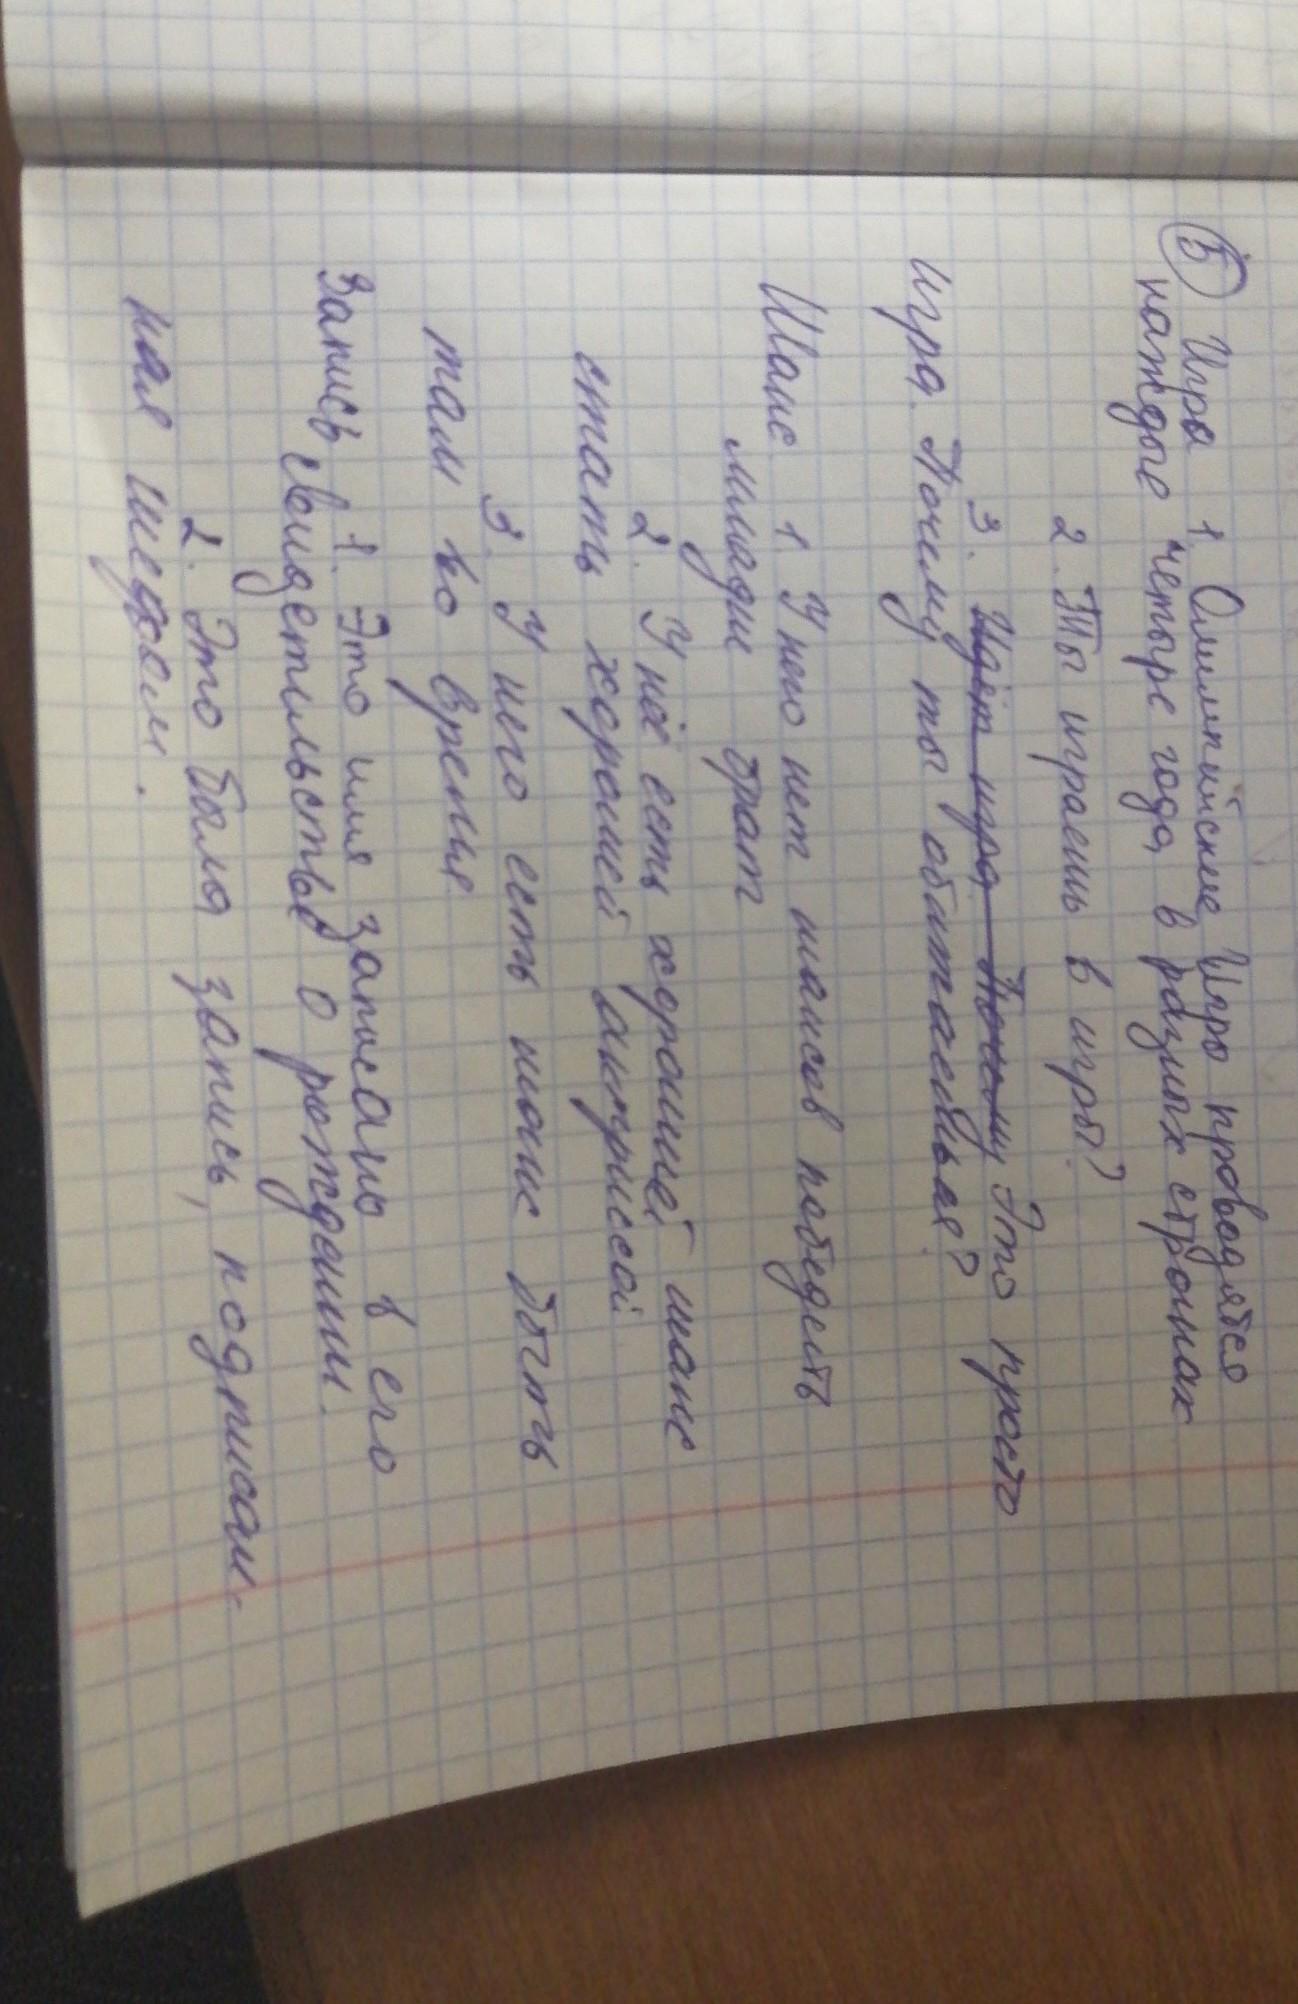 5 Игра 1. Олимпийские Игры проводятся
каждые четыре года в разных странах
2. Ты играешь в игры?
3. Идёт игра. Почему Это просто
игра. Почему ты обижаешься?
Шанс 1. У него нет шансов победить
младши брат
2. У неё есть хороший шанс
стать хорошей актриссой
3. У него есть шанс быть
там во время
Запись 1. Это имя записано в его
свидетельстве о рождении.
2. Это была запись, подписан-
ная шефом.